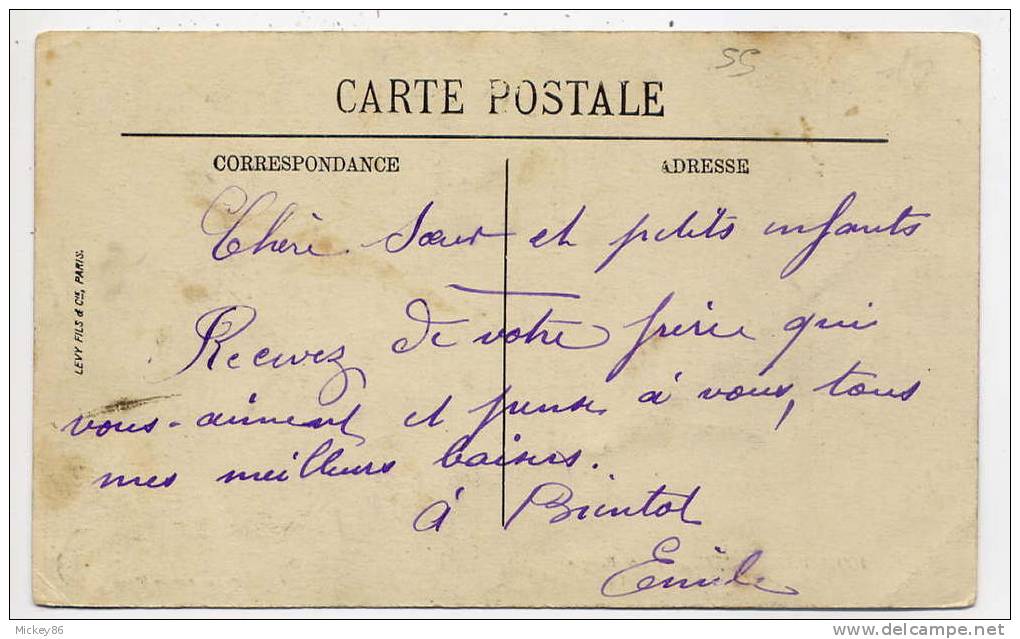 55
CARTE POSTALE
CORRESPONDANCE
ADRESSE
LEVY FILS & Cie, PARIS.
Chère Sœur et petits enfants
Recevez de votre frère qui
vous-aiment et pense à vous, tous
mes meilleurs baisers.
à Bientot
Emile
Mickey86
www.delcampe.net